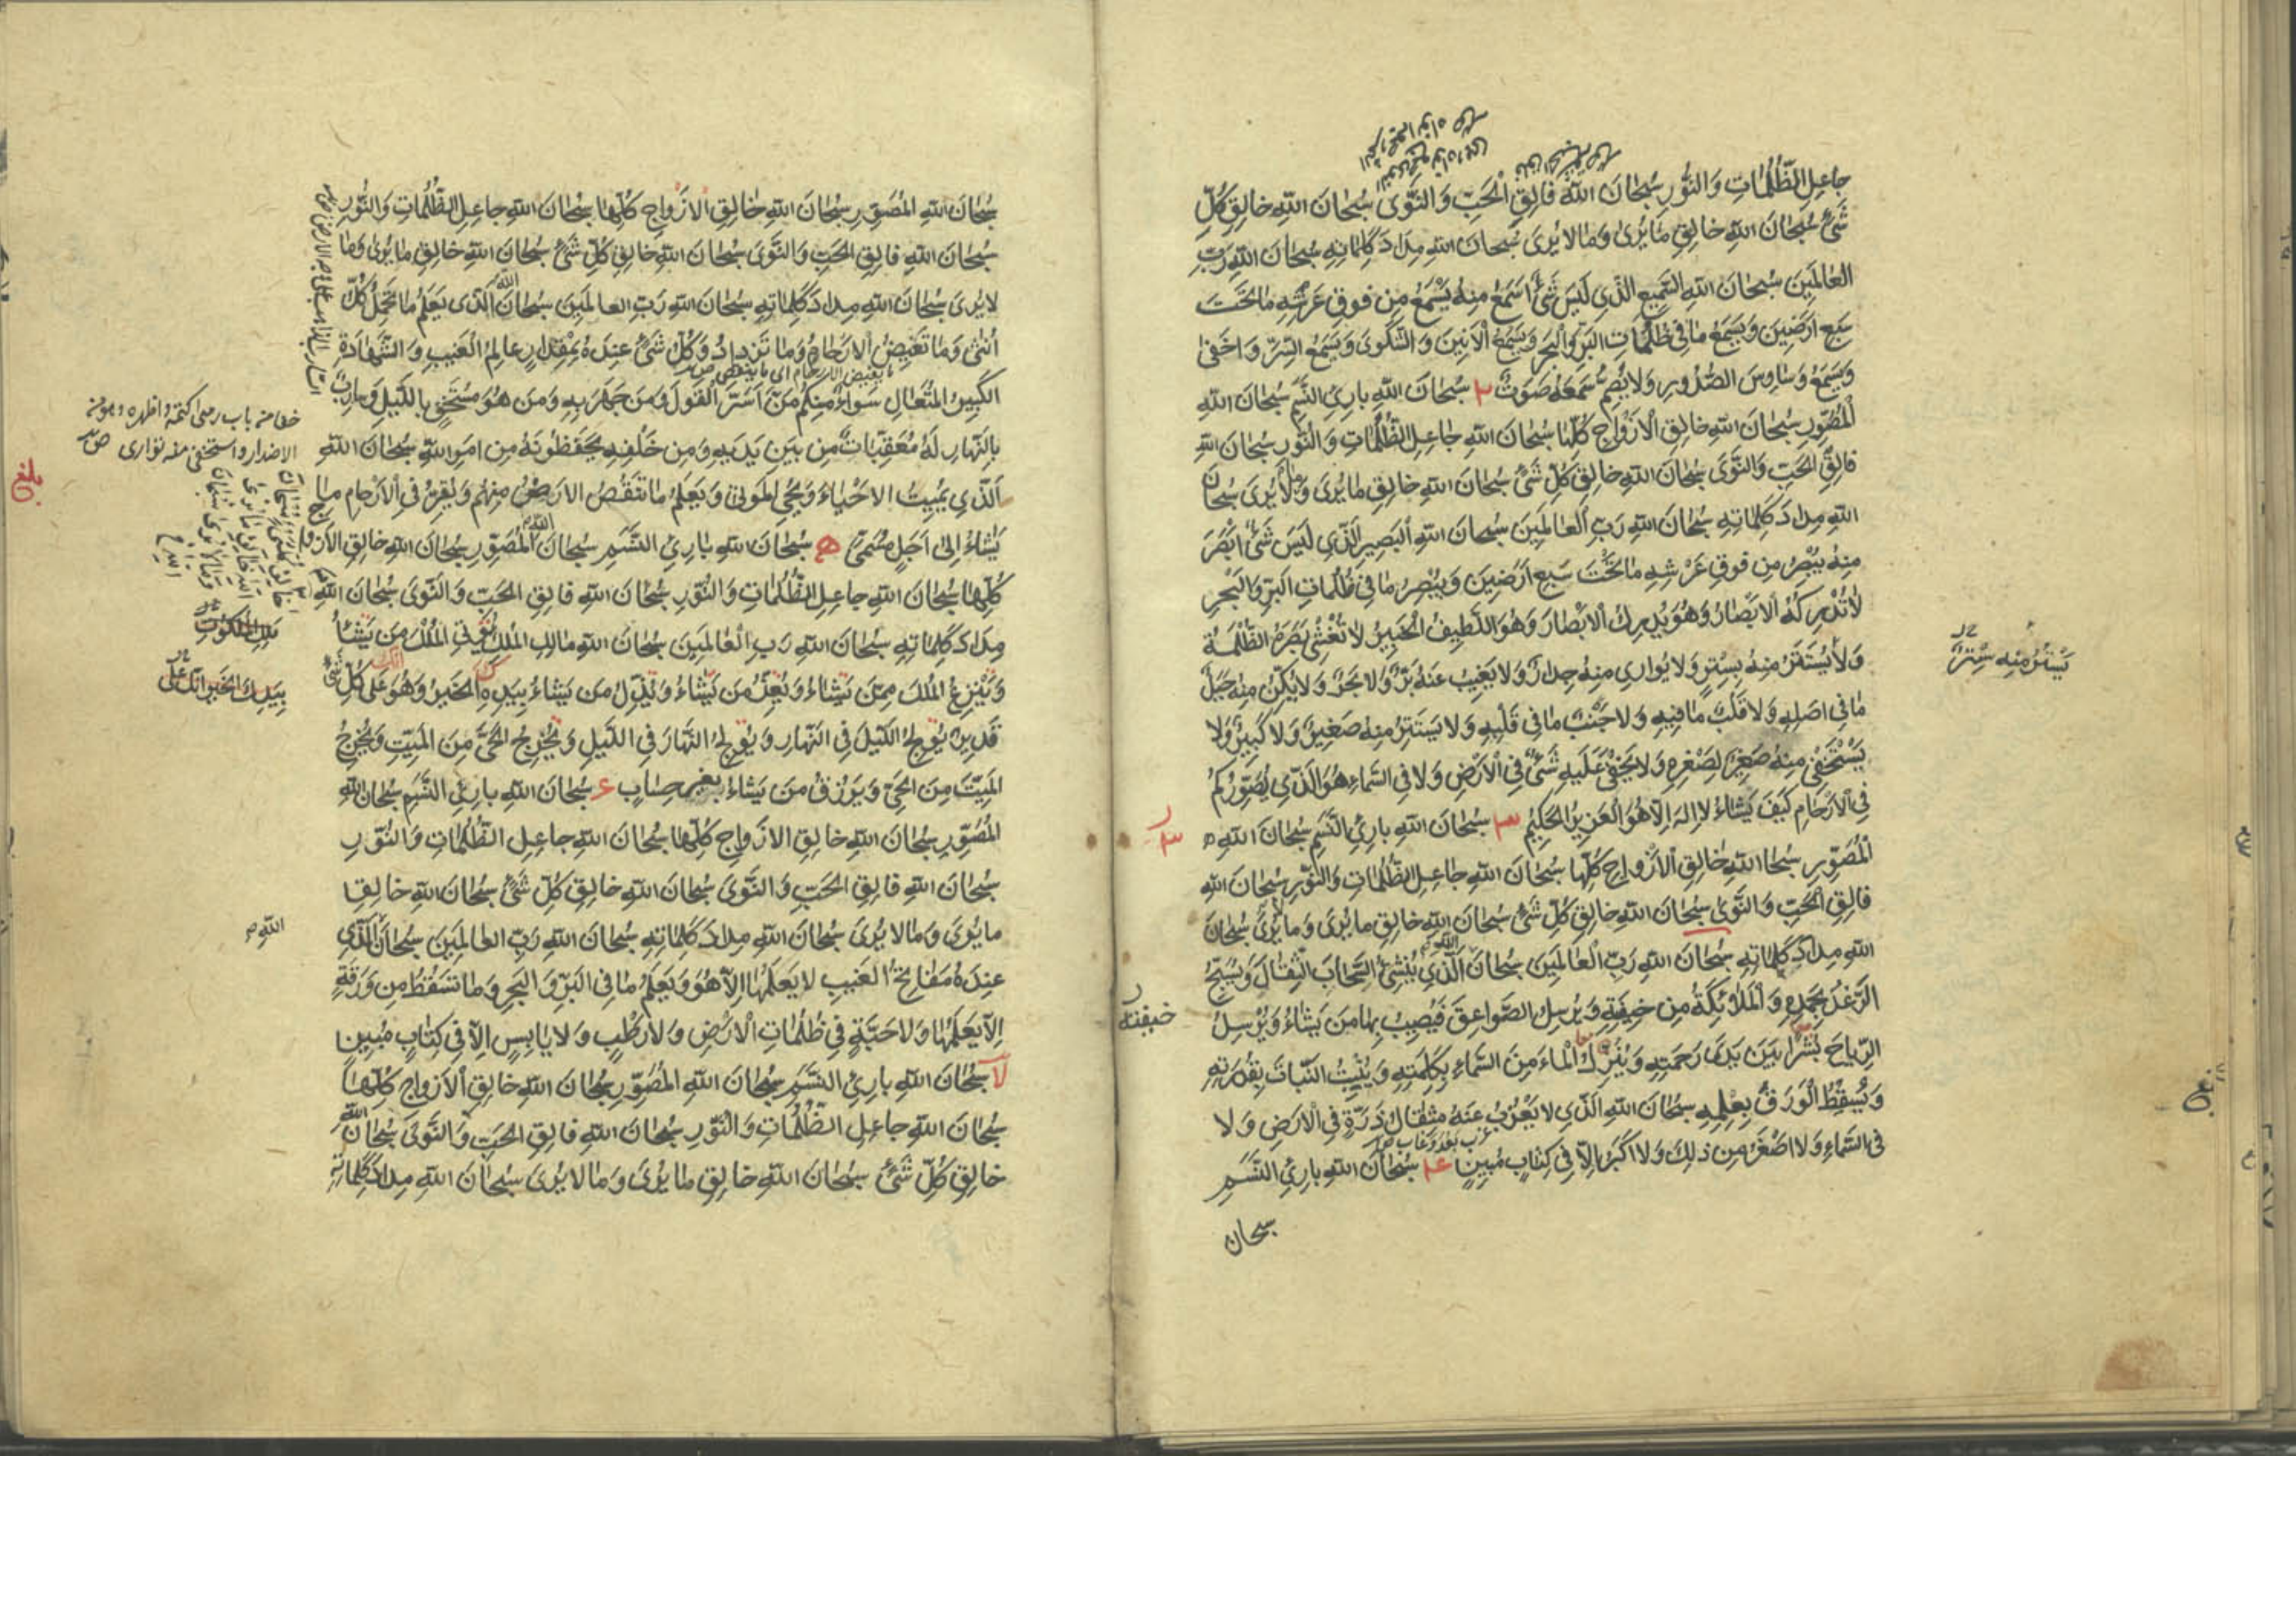 جاعِلِ الظُّلُمَاتِ وَالنُّورِ سُبْحَانَ اللهِ فَالِقِ الْحَبِّ وَالنَّوَى سُبْحَانَ اللهِ خَالِقِ كُلِّ
شَيْءٍ سُبْحَانَ اللهِ خَالِقِ مَا يُرَى وَمَا لَا يُرَى سُبْحَانَ اللهِ مِدَادَ كَلِمَاتِهِ سُبْحَانَ اللهِ رَبِّ
الْعَالَمِينَ سُبْحَانَ اللهِ السَّمِيعِ الَّذِي لَيْسَ شَيْءٌ أَسْمَعَ مِنْهُ يَسْمَعُ مِنْ فَوْقِ عَرْشِهِ مَا تَحْتَ
سَبْعِ أَرَضِينَ وَيَسْمَعُ مَا فِي ظُلُمَاتِ الْبَرِّ وَالْبَحْرِ وَيَسْمَعُ الْأَنِينَ وَالشَّكْوَى وَيَسْمَعُ السِّرَّ وَأَخْفَى
وَيَسْمَعُ وَسَاوِسَ الصُّدُورِ وَلَا يُصِمُّ سَمْعَهُ صَوْتٌ ٢ سُبْحَانَ اللهِ بَارِئِ النَّسَمِ سُبْحَانَ اللهِ
الْمُصَوِّرِ سُبْحَانَ اللهِ خَالِقِ الْأَزْوَاجِ كُلِّهَا سُبْحَانَ اللهِ جَاعِلِ الظُّلُمَاتِ وَالنُّورِ سُبْحَانَ اللهِ
فَالِقِ الْحَبِّ وَالنَّوَى سُبْحَانَ اللهِ خَالِقِ كُلِّ شَيْءٍ سُبْحَانَ اللهِ خَالِقِ مَا يُرَى وَمَا لَا يُرَى سُبْحَانَ
اللهِ مِدَادَ كَلِمَاتِهِ سُبْحَانَ اللهِ رَبِّ الْعَالَمِينَ سُبْحَانَ اللهِ الْبَصِيرِ الَّذِي لَيْسَ شَيْءٌ أَبْصَرَ
مِنْهُ يُبْصِرُ مِنْ فَوْقِ عَرْشِهِ مَا تَحْتَ سَبْعِ أَرَضِينَ وَيُبْصِرُ مَا فِي ظُلُمَاتِ الْبَرِّ وَالْبَحْرِ
لَا تُدْرِكُهُ الْأَبْصَارُ وَهُوَ يُدْرِكُ الْأَبْصَارَ وَهُوَ اللَّطِيفُ الْخَبِيرُ لَا تُغْشِي بَصَرَهُ الظُّلْمَةُ
وَلَا يُسْتَتَرُ مِنْهُ بِسِتْرٍ وَلَا يُوَارِي مِنْهُ جِدَارٌ وَلَا يَغِيبُ عَنْهُ بَرٌّ وَلَا بَحْرٌ وَلَا يُكِنُّ مِنْهُ جَبَلٌ
مَا فِي أَصْلِهِ وَلَا قَلْبٌ مَا فِيهِ وَلَا جَنْبٌ مَا فِي قَلْبِهِ وَلَا يَسْتَتِرُ مِنْهُ صَغِيرٌ وَلَا كَبِيرٌ وَلَا
يَسْتَخْفِي مِنْهُ صَغِيرٌ لِصِغَرِهِ وَلَا يَخْفَى عَلَيْهِ شَيْءٌ فِي الْأَرْضِ وَلَا فِي السَّمَاءِ هُوَ الَّذِي يُصَوِّرُكُمْ
فِي الْأَرْحَامِ كَيْفَ يَشَاءُ لَا إِلَهَ إِلَّا هُوَ الْعَزِيزُ الْحَكِيمُ ٣ سُبْحَانَ اللهِ بَارِئِ النَّسَمِ سُبْحَانَ اللهِ
الْمُصَوِّرِ سُبْحَا اللهِ خَالِقِ الْأَزْوَاجِ كُلِّهَا سُبْحَانَ اللهِ جَاعِلِ الظُّلُمَاتِ وَالنُّورِ سُبْحَانَ اللهِ
فَالِقِ الْحَبِّ وَالنَّوَى سُبْحَانَ اللهِ خَالِقِ كُلِّ شَيْءٍ سُبْحَانَ اللهِ خَالِقِ مَا يُرَى وَمَا لا يُرَى سُبْحَانَ
اللهِ مِدَادَ كَلِمَاتِهِ سُبْحَانَ اللهِ رَبِّ الْعَالَمِينَ سُبْحَانَ اللهِ الَّذِي يُنْشِئُ السَّحَابَ الثِّقَالَ وَيُسَبِّحُ
الرَّعْدُ بِحَمْدِهِ وَالْمَلَائِكَةُ مِنْ خِيفَتِهِ وَيُرْسِلُ الصَّوَاعِقَ فَيُصِيبُ بِهَا مَنْ يَشَاءُ وَيُرْسِلُ
الرِّيَاحَ بُشْرًا بَيْنَ يَدَيْ رَحْمَتِهِ وَيُنَزِّلُ الْمَاءَ مِنَ السَّمَاءِ بِكَلِمَتِهِ وَيُنْبِتُ النَّبَاتَ بِقُدْرَتِهِ
وَيُسْقِطُ الْوَرَقَ بِعِلْمِهِ سُبْحَانَ اللهِ الَّذِي لَا يَعْزُبُ عَنْهُ مِثْقَالُ ذَرَّةٍ فِي الْأَرْضِ وَلَا
فِي السَّمَاءِ وَلَا أَصْغَرُ مِنْ ذَلِكَ وَلَا أَكْبَرُ إِلَّا فِي كِتَابٍ مُبِينٍ ٤ سُبْحَانَ اللهِ بَارِئِ النَّسَمِ
سبحان
يَسْتَتِرُ مِنْهُ سِتْرٌ
خيفته
سُبْحَانَ اللهِ الْمُصَوِّرِ سُبْحَانَ اللهِ خَالِقِ الْأَزْوَاجِ كُلِّهَا سُبْحَانَ اللهِ جَاعِلِ الظُّلُمَاتِ وَالنُّورِ
سُبْحَانَ اللهِ فَالِقِ الْحَبِّ وَالنَّوَى سُبْحَانَ اللهِ خَالِقِ كُلِّ شَيْءٍ سُبْحَانَ اللهِ خَالِقِ مَا يُرَى وَمَا
لَا يُرَى سُبْحَانَ اللهِ مِدَادَ كَلِمَاتِهِ سُبْحَانَ اللهِ رَبِّ الْعَالَمِينَ سُبْحَانَ اللهِ الَّذِي يَعْلَمُ مَا تَحْمِلُ كُلُّ
أُنْثَى وَمَا تَغِيضُ الْأَرْحَامُ وَمَا تَزْدَادُ وَكُلُّ شَيْءٍ عِنْدَهُ بِمِقْدَارٍ عَالِمُ الْغَيْبِ وَالشَّهَادَةِ
الْكَبِيرُ الْمُتَعَالِ سَوَاءٌ مِنْكُمْ مَنْ أَسَرَّ الْقَوْلَ وَمَنْ جَهَرَ بِهِ وَمَنْ هُوَ مُسْتَخْفٍ بِاللَّيْلِ وَسَارِبٌ
بِالنَّهَارِ لَهُ مُعَقِّبَاتٌ مِنْ بَيْنِ يَدَيْهِ وَمِنْ خَلْفِهِ يَحْفَظُونَهُ مِنْ أَمْرِ اللهِ سُبْحَانَ اللهِ
الَّذِي يُمِيتُ الْأَحْيَاءَ وَيُحْيِي الْمَوْتَى وَيَعْلَمُ مَا تَنْقُصُ الْأَرْضُ مِنْهُمْ وَيُقِرُّ فِي الْأَرْحَامِ مَا
يَشَاءُ إِلَى أَجَلٍ مُسَمًّى ه سُبْحَانَ اللهِ بَارِئِ النَّسَمِ سُبْحَانَ اللهِ الْمُصَوِّرِ سُبْحَانَ اللهِ خَالِقِ الْأَزْوَاجِ
كُلِّهَا سُبْحَانَ اللهِ جَاعِلِ الظُّلُمَاتِ وَالنُّورِ سُبْحَانَ اللهِ فَالِقِ الْحَبِّ وَالنَّوَى سُبْحَانَ اللهِ
مِدَادَ كَلِمَاتِهِ سُبْحَانَ اللهِ رَبِّ الْعَالَمِينَ سُبْحَانَ اللهِ مَالِكِ الْمُلْكِ يُؤْتِي الْمُلْكَ مَنْ يَشَاءُ
وَيَنْزِعُ الْمُلْكَ مِمَّنْ يَشَاءُ وَيُعِزُّ مَنْ يَشَاءُ وَيُذِلُّ مَنْ يَشَاءُ بِيَدِهِ الْخَيْرُ وَهُوَ عَلَى كُلِّ شَيْءٍ
قَدِيرٌ يُولِجُ اللَّيْلَ فِي النَّهَارِ وَيُولِجُ النَّهَارَ فِي اللَّيْلِ وَيُخْرِجُ الْحَيَّ مِنَ الْمَيِّتِ وَيُخْرِجُ
الْمَيِّتَ مِنَ الْحَيِّ وَيَرْزُقُ مَنْ يَشَاءُ بِغَيْرِ حِسَابٍ ۶ سُبْحَانَ اللهِ بَارِئِ النَّسَمِ سُبْحَانَ اللهِ
الْمُصَوِّرِ سُبْحَانَ اللهِ خَالِقِ الْأَزْوَاجِ كُلِّهَا سُبْحَانَ اللهِ جَاعِلِ الظُّلُمَاتِ وَالنُّورِ
سُبْحَانَ اللهِ فَالِقِ الْحَبِّ وَالنَّوَى سُبْحَانَ اللهِ خَالِقِ كُلِّ شَيْءٍ سُبْحَانَ اللهِ خَالِقِ
مَا يُرَى وَمَا لَا يُرَى سُبْحَانَ اللهِ مِدَادَ كَلِمَاتِهِ سُبْحَانَ اللهِ رَبِّ الْعَالَمِينَ سُبْحَانَ الَّذِي
عِنْدَهُ مَفَاتِحُ الْغَيْبِ لَا يَعْلَمُهَا إِلَّا هُوَ وَيَعْلَمُ مَا فِي الْبَرِّ وَالْبَحْرِ وَمَا تَسْقُطُ مِنْ وَرَقَةٍ
إِلَّا يَعْلَمُهَا وَلَا حَبَّةٍ فِي ظُلُمَاتِ الْأَرْضِ وَلَا رَطْبٍ وَلَا يَابِسٍ إِلَّا فِي كِتَابٍ مُبِينٍ
سُبْحَانَ اللهِ بَارِئِ النَّسَمِ سُبْحَانَ اللهِ الْمُصَوِّرِ سُبْحَانَ اللهِ خَالِقِ الْأَزْوَاجِ كُلِّهَا
سُبْحَانَ اللهِ جَاعِلِ الظُّلُمَاتِ وَالنُّورِ سُبْحَانَ اللهِ فَالِقِ الْحَبِّ وَالنَّوَى سُبْحَانَ اللهِ
خَالِقِ كُلِّ شَيْءٍ سُبْحَانَ اللهِ خَالِقِ مَا يُرَى وَمَا لَا يُرَى سُبْحَانَ اللهِ مِدَادَ كَلِمَاتِهِ
بلغ
بِيَدِكَ الْخَيْرُ إِنَّكَ عَلَى
الله